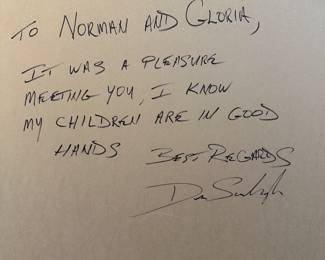 To Norman and Gloria,
It was a pleasure
meeting you, I know
my children are in good
hands Best Regards